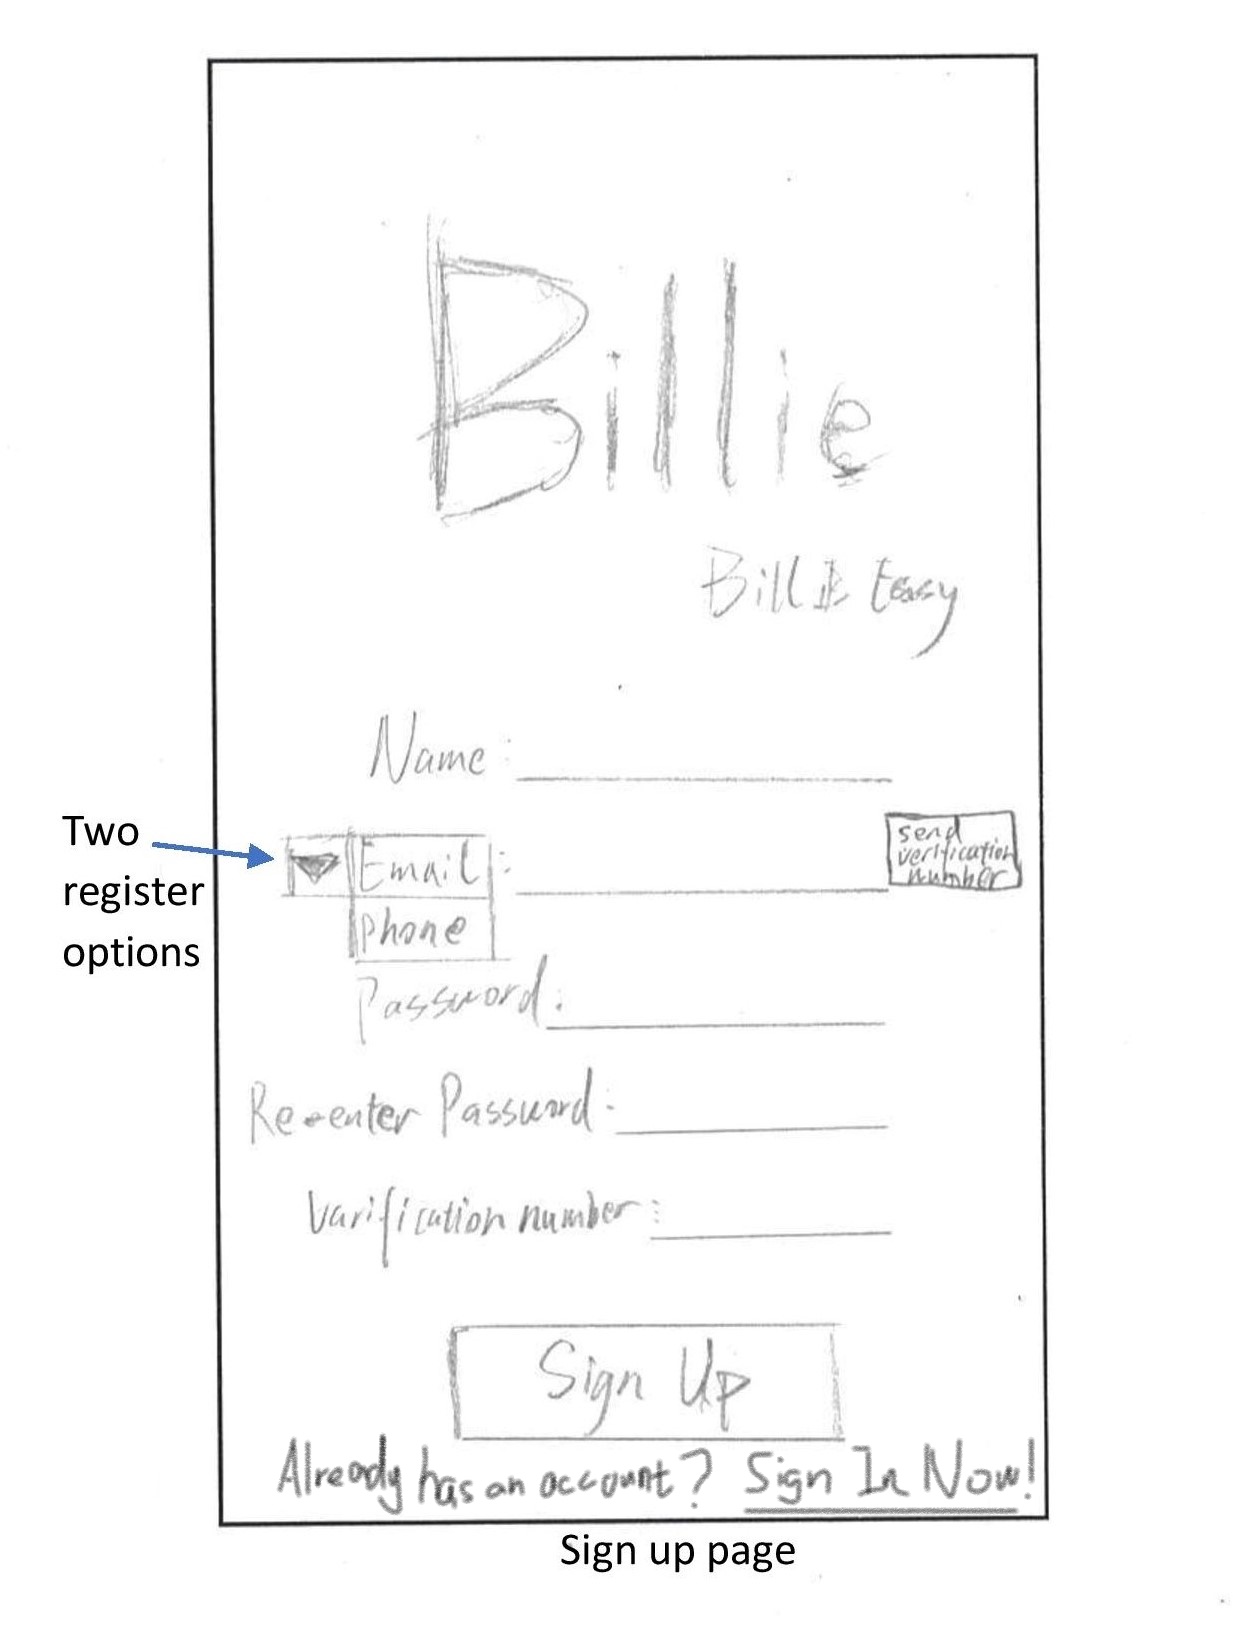 Billie
Bill Is Easy
Name:
Two
register
options
Email:
phone
send
verification
number
Password:
Re-enter Password:
Varification number:
Sign Up
Already has an account? Sign In Now!
Sign up page